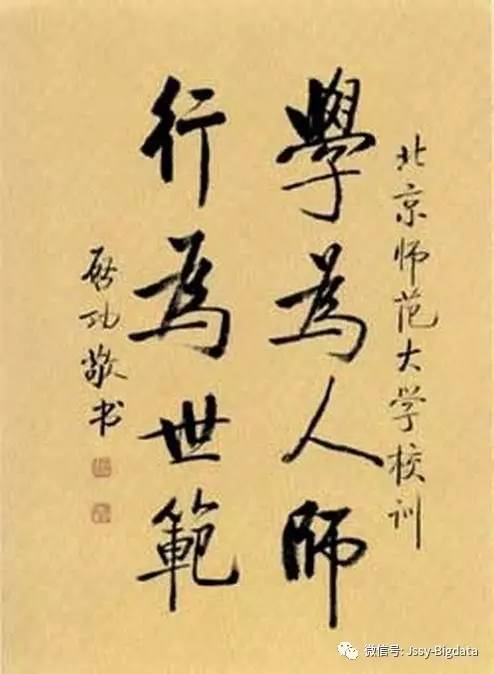 北京师范大学校训
學為人師
行為世範
启功敬书
微信号: Jssy-Bigdata